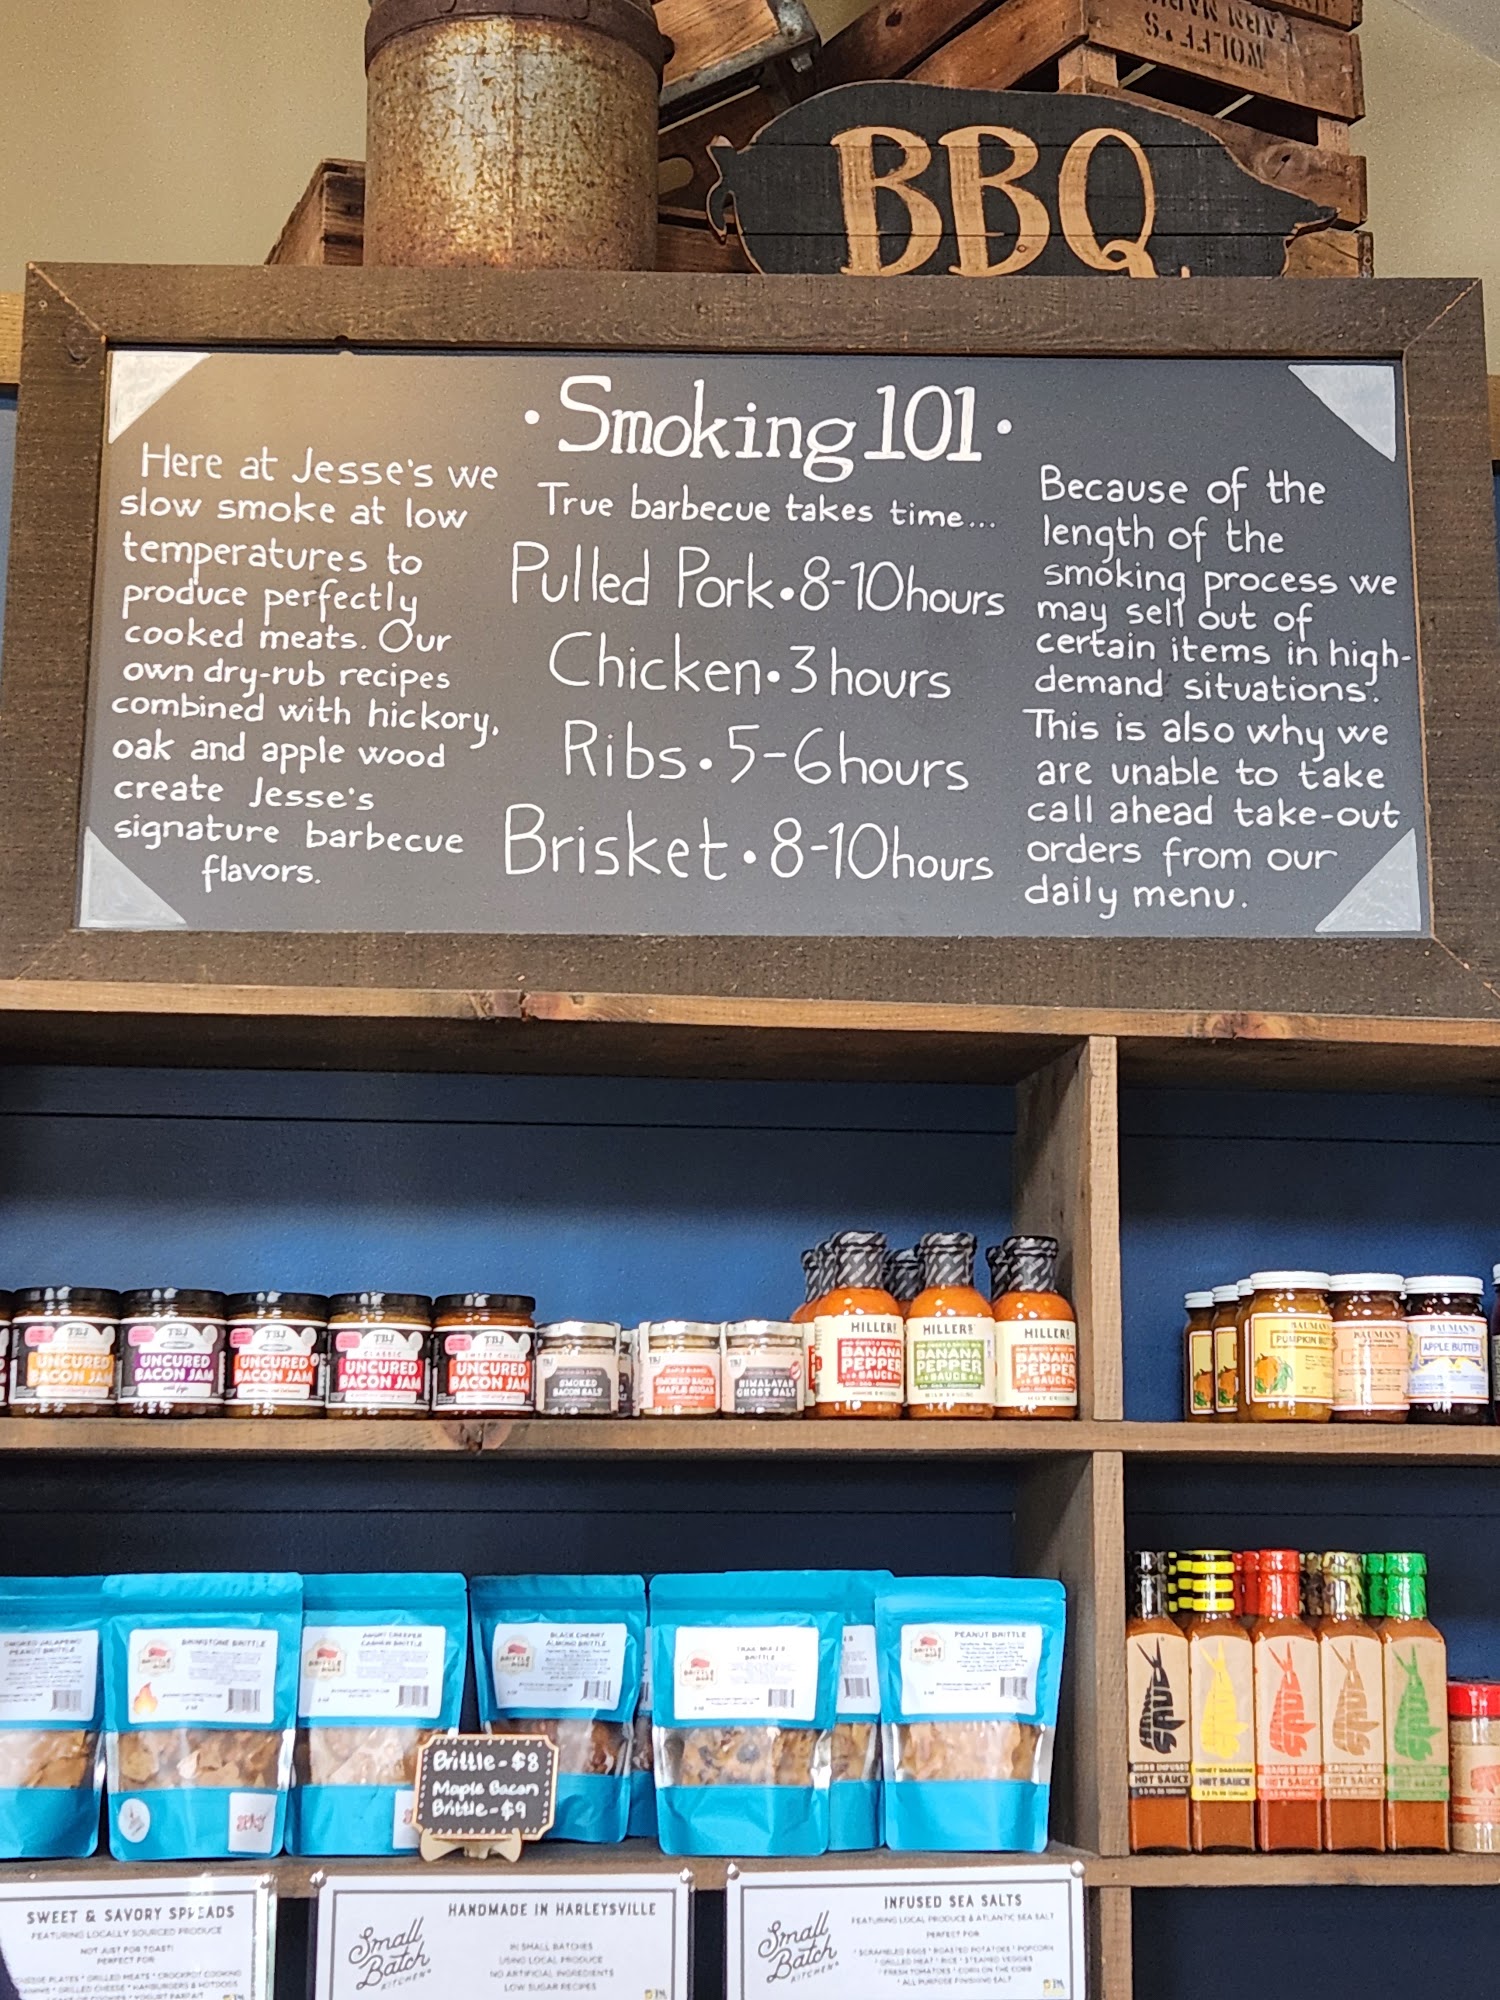 WOLFF'S
FARM MARK
BBQ
• Smoking 101 •
Here at Jesse's we
slow smoke at low
temperatures to
produce perfectly
cooked meats. Our
own dry-rub recipes
combined with hickory,
oak and apple wood
create Jesse's
signature barbecue
flavors.
True barbecue takes time...
Pulled Pork • 8-10 hours
Chicken • 3 hours
Ribs • 5-6 hours
Brisket • 8-10 hours
Because of the
length of the
smoking process we
may sell out of
certain items in high-
demand situations.
This is also why we
are unable to take
call ahead take-out
orders from our
daily menu.
TBJ
UNCURED
BACON JAM
TBJ
UNCURED
BACON JAM
TBJ
UNCURED
BACON JAM
TBJ
CLASSIC
UNCURED
BACON JAM
TBJ
SWEET CHILI
UNCURED
BACON JAM
SMOKED
BACON SALT
TBJ
SMOKED BACON
MAPLE SUGAR
TBJ
HIMALAYAN
GHOST SALT
HILLER'S
BANANA
PEPPER
SAUCE
HILLER'S
BANANA
PEPPER
SAUCE
HILLER'S
BANANA
PEPPER
SAUCE
BAUMAN'S
PUMPKIN BU
BAUMAN'S
BAUMAN'S
APPLE BUTTER
SMOKED JALAPENO
PEANUT BRITTLE
BRIMSTONE BRITTLE
CASHEW BRITTLE
BLACK CHERRY
ALMOND BRITTLE
TRAIL MIX
BRITTLE
PEANUT BRITTLE
Brittle - $8
Maple Bacon
Brittle - $9
HOT SAUCE
HOT SAUCE
HOT SAUCE
HOT SAUCE
HOT SAUCE
SWEET & SAVORY SPREADS
FEATURING LOCALLY SOURCED PRODUCE
NOT JUST FOR TOAST!
PERFECT FOR
CHEESE PLATES * GRILLED MEATS * CROCKPOT COOKING
* GRILLED CHEESE * HAMBURGERS & HOTDOGS
Small
Batch
KITCHEN
HANDMADE IN HARLEYSVILLE
IN SMALL BATCHES
USING LOCAL PRODUCE
NO ARTIFICIAL INGREDIENTS
LOW SUGAR RECIPES
Small
Batch
KITCHEN
INFUSED SEA SALTS
FEATURING LOCAL PRODUCE & ATLANTIC SEA SALT
PERFECT FOR
* SCRAMBLED EGGS * ROASTED POTATOES * POPCORN
* GRILLED MEAT * RICE * STEAMED VEGGIES
* FRESH TOMATOES * CORN ON THE COBB
* ALL PURPOSE FINISHING SALT